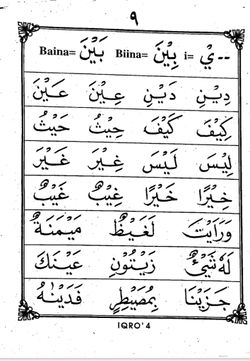 ٩
Baina= بَيْنَ Biina= بِيْنَ i= --يْ
دِيْنِ دَيْنِ عِيْنَ عَيْنَ
كِيْفَ كَيْفَ حِيْثُ حَيْثُ
لِيْسَ لَيْسَ غِيْرَ غَيْرَ
خِيْرًا خَيْرًا غِيْبٌ غَيْبٌ
وَرَاَيْتَ لَغَيْظٌ مَيْمَنَةٌ
لَهُ شَيْءٌ زَيْتُوْنٍ عَيْنَكَ
جَزَيْنَا بِمُصَيْطِرٍ فَدَيْنٰهُ
IQRO'4